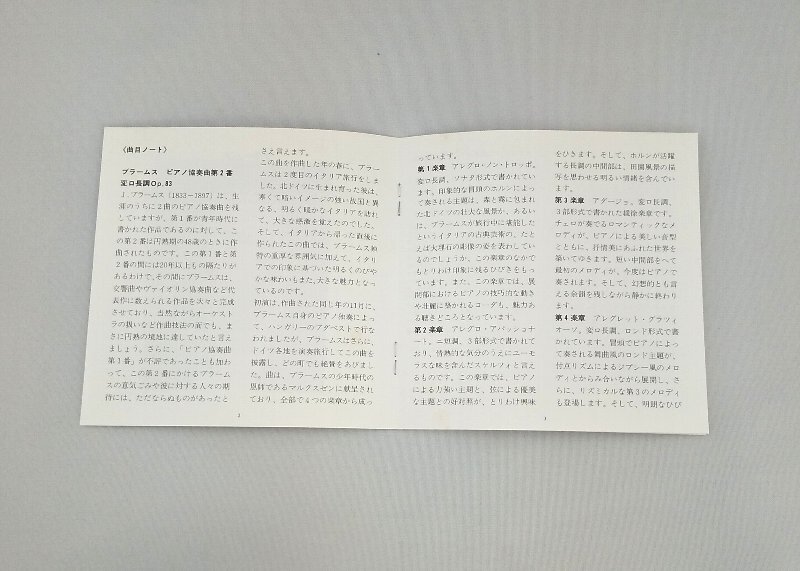 〈曲目ノート〉
ブラームス　ピアノ協奏曲第２番
変ロ長調Op.83
J．ブラームス（1833―1897）は、生
涯のうちに２曲のピアノ協奏曲を残
していますが、第１番が青年時代に
書かれた作品であるのに対して、こ
の第２番は円熟期の48歳のときに作
曲されたものです。この第１番と第
２番の間には20年以上もの隔たりが
あるわけで、その間にブラームスは、
交響曲やヴァイオリン協奏曲など代
表作に数えられる作品を次々と完成
させており、当然ながらオーケスト
ラの扱いなど作曲技法の面でも、ま
さに円熟の境地に達していたと言え
ましょう。さらに、「ピアノ協奏曲
第１番」が不評であったことも加わ
って、この第２番にかけるブラーム
スの意気ごみや彼に対する人々の期
待には、ただならぬものがあったと
2
さえ言えます。
この曲を作曲した年の春に、ブラー
ムスは２度目のイタリア旅行をしま
した。北ドイツに生まれ育った彼は、
寒くて暗いイメージの強い故国と異
なる、明るく暖かなイタリアを訪れ
て、大きな感激を覚えたのでした。
そして、イタリアから帰った直後に
作られたこの曲では、ブラームス独
特の重厚な雰囲気に加えて、イタリ
アでの印象に基づいた明るくのびや
かな味わいもまた大きな魅力となっ
ているのです。
初演は、作曲された同じ年の11月に、
ブラームス自身のピアノ独奏によっ
て、ハンガリーのブダペストで行な
われましたが、ブラームスはさらに、
ドイツ各地を演奏旅行してこの曲を
披露し、どの町でも絶賛をあびまし
た。曲は、ブラームスの少年時代の
恩師であるマルクスゼンに献呈され
ており、全部で４つの楽章から成っ
ています。
第１楽章　アレグロ・ノン・トロッポ。
変ロ長調、ソナタ形式で書かれてい
ます。印象的な冒頭のホルンによっ
て奏される主題は、森と霧に包まれ
た北ドイツの壮大な風景か、あるい
は、ブラームスが旅行中に堪能した
というイタリアの古典芸術の、たと
えば大理石の彫像の姿を表わしてい
るのでしょうか。この楽章のなかで
もとりわけ印象に残るひびきをもっ
ています。また、この楽章では、展
開部におけるピアノの技巧的な動き
や壮麗に築かれるコーダも、魅力あ
る聴きどころとなっています。
第２楽章　アレグロ・アパッショナ
ート。ニ短調、３部形式で書かれて
おり、情熱的な気分のうちにユーモ
ラスな味を含んだスケルツォと言え
るものです。この楽章では、ピアノ
による力強い主題と、弦による優美
な主題との好対照が、とりわけ興味
3
をひきます。そして、ホルンが活躍
する長調の中間部は、田園風景の描
写を思わせる明るい情緒を含んでい
ます。
第３楽章　アダージョ。変ロ長調、
３部形式で書かれた緩徐楽章です。
チェロが奏でるロマンティックなメ
ロディが、ピアノによる美しい音型
とともに、抒情美にあふれた世界を
築いてゆきます。短い中間部をへて
最初のメロディが、今度はピアノで
奏されます。そして、幻想的とも言
える余韻を残しながら静かに終わり
ます。
第４楽章　アレグレット・グラツィ
オーソ。変ロ長調、ロンド形式で書
かれています。冒頭でピアノによっ
て奏される舞曲風のロンド主題が、
付点リズムによるジプシー風のメロ
ディとからみ合いながら展開し、さ
らに、リズミカルな第３のメロディ
も登場します。そして、明朗なひび